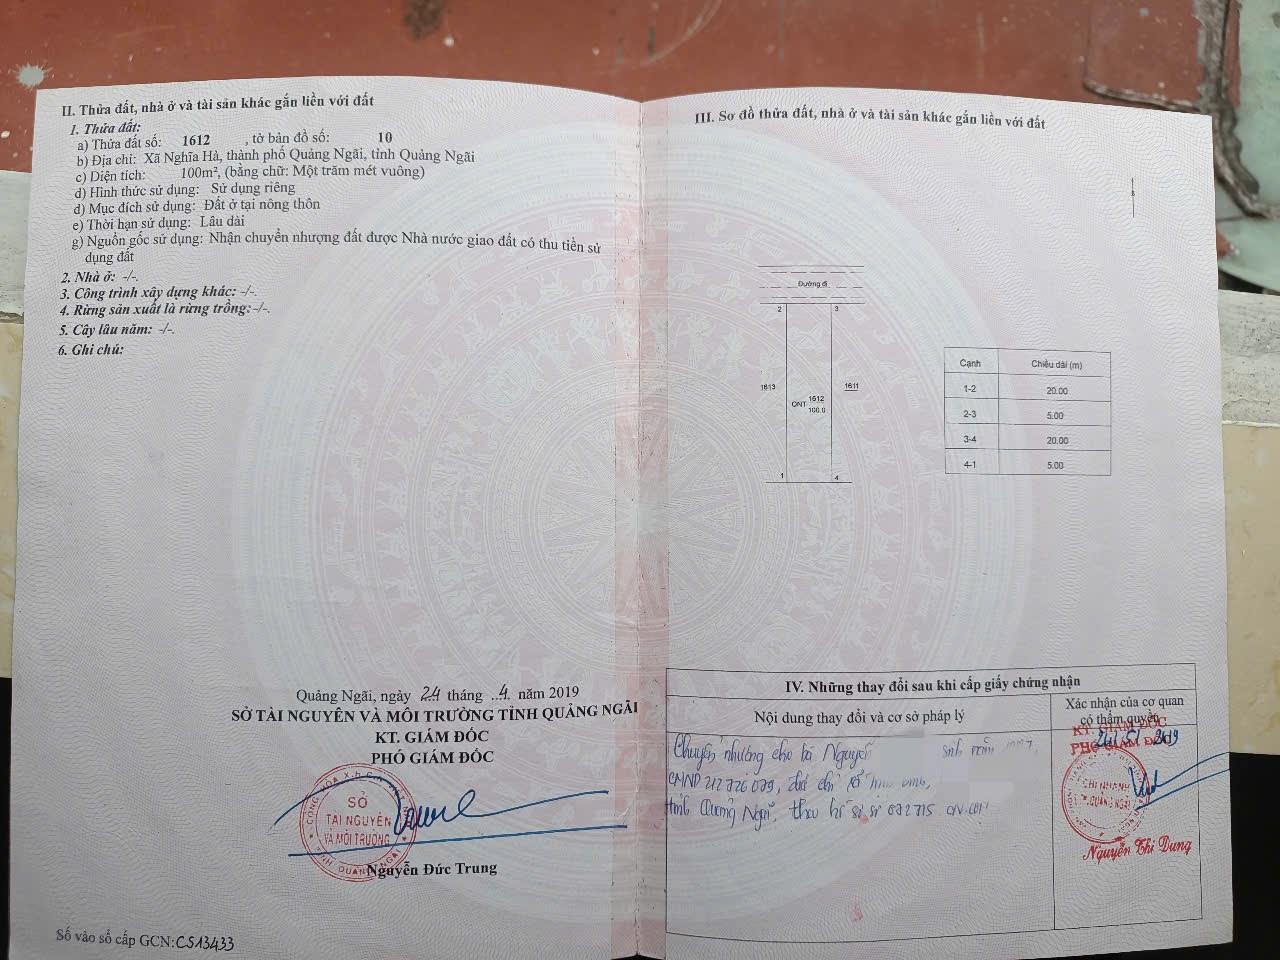 II. Thửa đất, nhà ở và tài sản khác gắn liền với đất
1. Thửa đất:
a) Thửa đất số: 1612 , tờ bản đồ số: 10
b) Địa chỉ: Xã Nghĩa Hà, thành phố Quảng Ngãi, tỉnh Quảng Ngãi
c) Diện tích: 100m², (bằng chữ: Một trăm mét vuông)
d) Hình thức sử dụng: Sử dụng riêng
đ) Mục đích sử dụng: Đất ở tại nông thôn
e) Thời hạn sử dụng: Lâu dài
g) Nguồn gốc sử dụng: Nhận chuyển nhượng đất được Nhà nước giao đất có thu tiền sử
dụng đất
2. Nhà ở: -/-.
3. Công trình xây dựng khác: -/-.
4. Rừng sản xuất là rừng trồng: -/-.
5. Cây lâu năm: -/-.
6. Ghi chú:
Quảng Ngãi, ngày 24 tháng ..4. năm 2019
SỞ TÀI NGUYÊN VÀ MÔI TRƯỜNG TỈNH QUẢNG NGÃI
KT. GIÁM ĐỐC
PHÓ GIÁM ĐỐC
SỞ
TÀI NGUYÊN
VÀ MÔI TRƯỜNG
Nguyễn Đức Trung
Số vào sổ cấp GCN: CS13433
III. Sơ đồ thửa đất, nhà ở và tài sản khác gắn liền với đất
Đường đi
2 3
1613 1611
ONT 1612
100.0
1 4
Cạnh Chiều dài (m)
1-2 20.00
2-3 5.00
3-4 20.00
4-1 5.00
IV. Những thay đổi sau khi cấp giấy chứng nhận
Nội dung thay đổi và cơ sở pháp lý
Xác nhận của cơ quan
có thẩm quyền
Chuyển nhượng cho bà Nguyễn sinh năm
CMND 212726079, địa chỉ
tỉnh Quảng Ngãi, theo hồ sơ số
KT. GIÁM ĐỐC
PHÓ GIÁM ĐỐC
CHI NHÁNH
QUẢNG NGÃI
Nguyễn Thị Dung